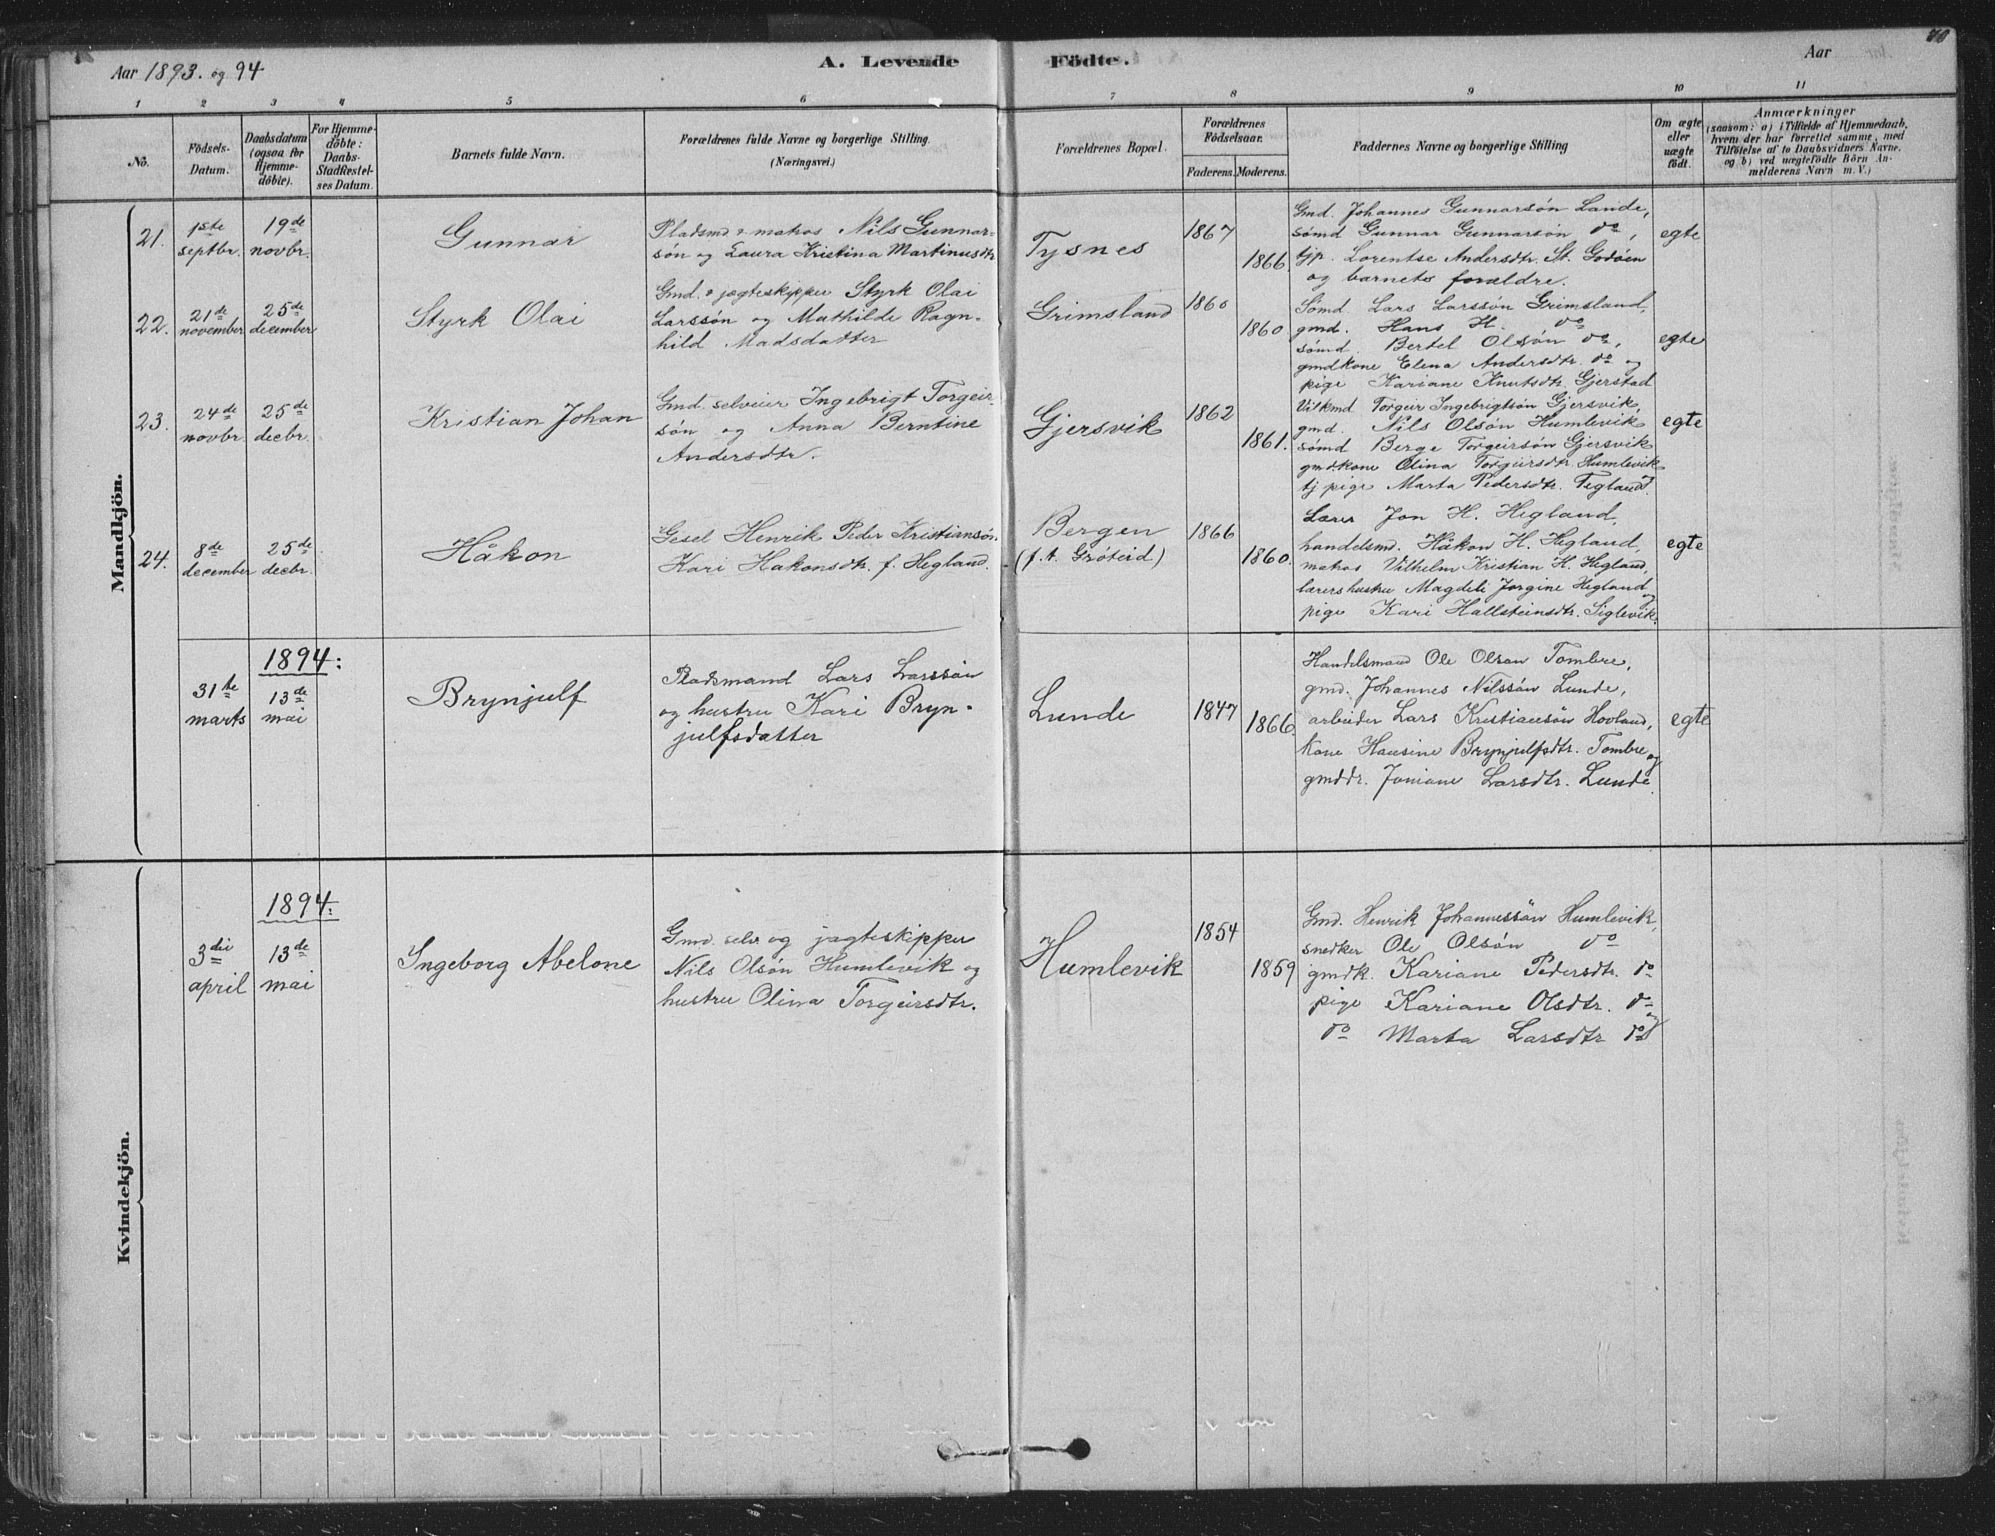 Aar 1893. og 94
A. Levende Födte.
Aar
70
1 2 3 4 5 6 7 8 9 10 11
No.
Födsels-
Datum.
Daabsdatum
(ogsaa for
Hjemme-
döbte).
For Hjemme-
döbte:
Daabs-
Stadfæstel-
ses Datum.
Barnets fulde Navn.
Forældrenes fulde Navne og borgerlige Stilling.
(Næringsvei.)
Forældrenes Bopæl.
Forældrenes
Födselsaar.
Faderens. Moderens.
Faddernes Navne og borgerlige Stilling
Om ægte
eller
uægte
födt.
Anmærkninger
(saasom: a) i Tilfælde af Hjemmedaab,
hvem der har forrettet samme, med
Tilföielse af to Daabsvidners Navne,
og b) ved uægtefödte Börn An-
melderens Navn m. V.)
Mandkjön.
21.
1ste
septbr.
19de
novbr.
Gunnar
Pladsmd & matros Nils Gunnar-
søn og Laura Kristina Martinusdtr
Tysnes
1867
1866
Gmd. Johannes Gunnarsøn Lande,
sømd Gunnar Gunnarsøn do,
tjp. Lorentse Andersdtr. St. Godøen
og barnets forældre.
egte
22.
21de
november
25de
december
Styrk Olai
Gmd. & jægteskipper Styrk Olai
Larssøn og Mathilde Ragn-
hild Madsdatter
Grimsland
1860
1860
Sømd. Lars Larssøn Grimsland,
gmd. Hans H. do
sømd. Bertel Olsøn do,
gmdkone Elena Andersdtr. do og
pige Kariane Knutsdtr. Gjerstad
egte
23.
24de
novbr.
25de
decbr.
Kristian Johan
Gmd. selveier Ingebrigt Torgeir-
søn og Anna Berntine
Andersdtr.
Gjersvik
1862
1861.
Vilkmd Torgeir Ingebrigtsøn Gjersvik,
gmd. Nils Olsøn Humlevik
sømd Berge Torgeirsøn Gjersvik
gmdkone Olina Torgeirsdtr. Humlevik
tj pige Marta Pedersdtr. Tegland.
egte
24.
8de
december
25de
decbr.
Håkon
Gesel Henrik Peder Kristiansøn.
Kari Hakonsdtr. f. Hegland.
Bergen
(f. t. Grøteid)
1866
1860.
Lærer Jon H. Hegland,
handelsmd. Håkon H. Hegland,
matros Vilhelm Kristian H. Hegland,
lærershustru Magdeli Jorgine Hegland og
pige Kari Hallsteinsdtr. Siglevik.
egte
1894:
31te
marts
13de
mai
Brynjulf
Pladsmand Lars Larssøn
og hustru Kari Bryn-
julfsdatter
Lunde
1847
1866.
Handelsmand Ole Olson Tombre,
gmd. Johannes Nilssøn Lunde,
arbeider Lars Kristiansøn Hovland,
kone Hansine Brynjulfsdtr. Tombre og
gmddr. Joniane Larsdtr. Lunde.
egte
Kvindekjön.
1894:
3die
april
13de
mai
Ingeborg Abelone
Gmd. selv og jagteskipper
Nils Olsøn Humlevik og
hustru Olina Torgeirsdtr.
Humlevik
1854
1859
Gmd. Henrik Johannessøn Humlevik,
snedker Ole Olsøn do
gmdk. Kariane Pedersdtr. do
pige Kariane Olsdtr. do og
do Marta Larsdtr do